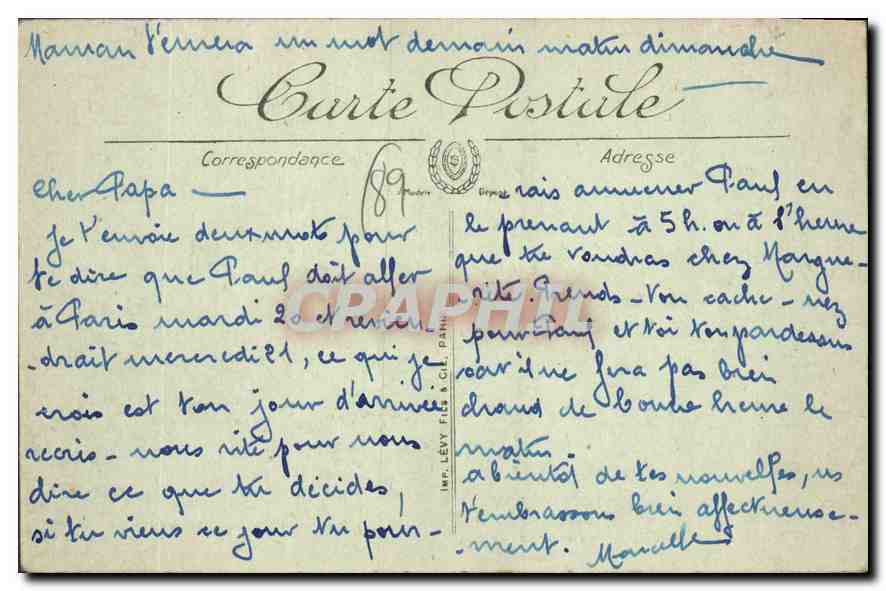 Maman t'enverra un mot demain matin dimanche
Carte Postale
Correspondance
Adresse
89
Modèle Déposé
cher Papa —
Je t'envoie deux mots pour
te dire que Paul doit aller
à Paris mardi 20 et revien-
-drait mercredi 21, ce qui je
crois est ton jour d'arrivée
récris-nous vite pour nous
dire ce que tu décides,
si tu viens ce jour tu pour-
-rais ammener Paul en
le prenant à 5h. ou à l'heure
que tu voudras chez Margue-
-rite. Prends-ton cache-nez
pour Paul et toi ton pardessus
car il ne fera pas bien
chaud de bonne heure le
matin.
a bientôt de tes nouvelles, ns
t'embrassons bien affectueuse-
-ment. Marcelle
IMP. LÉVY FILS & CIE, PARIS
CRAPHIL